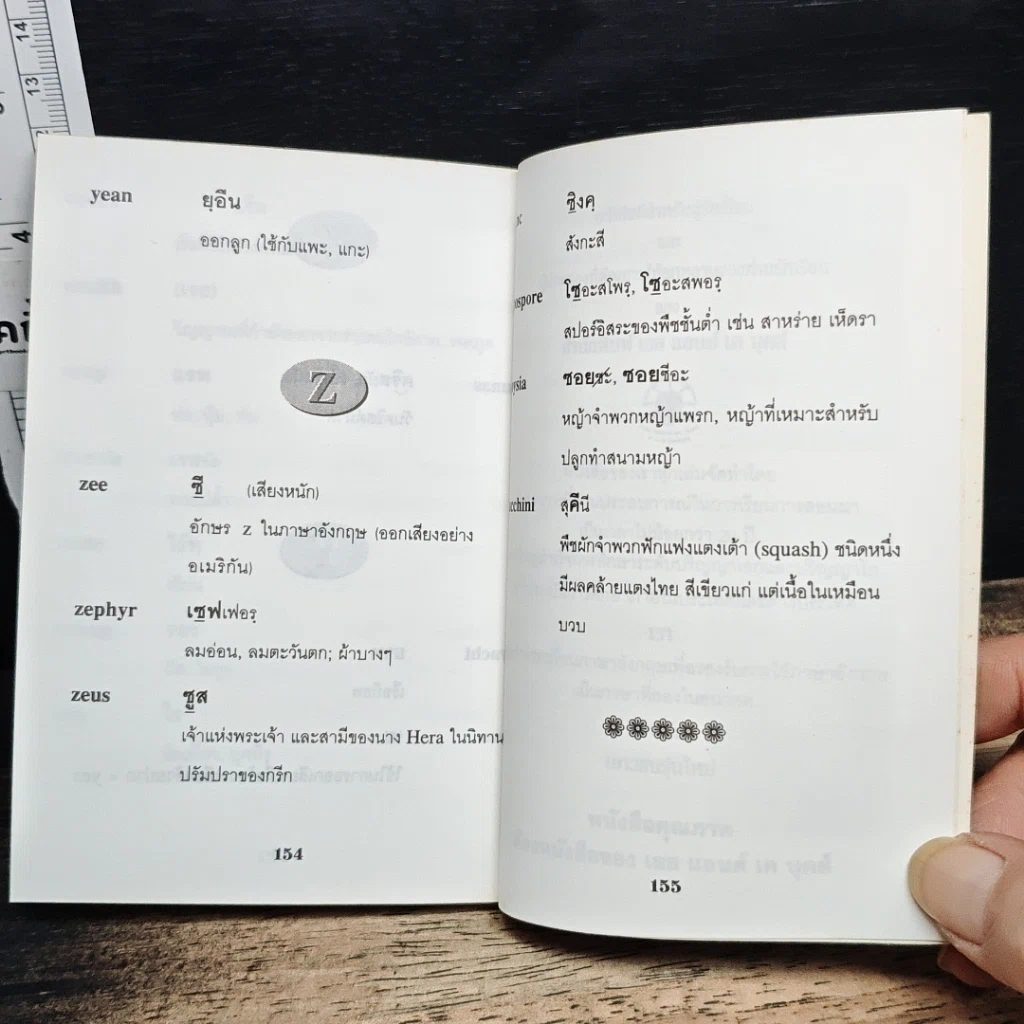 yean ยฺอีน
ออกลูก (ใช้กับแพะ, แกะ)
Z
zee ซี (เสียงหนัก)
อักษร z ในภาษาอังกฤษ (ออกเสียงอย่าง
อเมริกัน)
zephyr เซฟเฟอรฺ
ลมอ่อน, ลมตะวันตก; ผ้าบางๆ
zeus ซูส
เจ้าแห่งพระเจ้า และสามีของนาง Hera ในนิทาน
ปรัมปราของกรีก
154
ซิงคฺ
สังกะสี
ospore โซอะสโพรฺ, โซอะสพอรฺ
สปอร์อิสระของพืชชั้นต่ำ เช่น สาหร่าย เห็ดรา
ysia ซอยฺซะ, ซอยซีอะ
หญ้าจำพวกหญ้าแพรก, หญ้าที่เหมาะสำหรับ
ปลูกทำสนามหญ้า
cchini สุคีนี
พืชผักจำพวกฟักแฟงแตงเต้า (squash) ชนิดหนึ่ง
มีผลคล้ายแตงไทย สีเขียวแก่ แต่เนื้อในเหมือน
บวบ
155
14
13
4